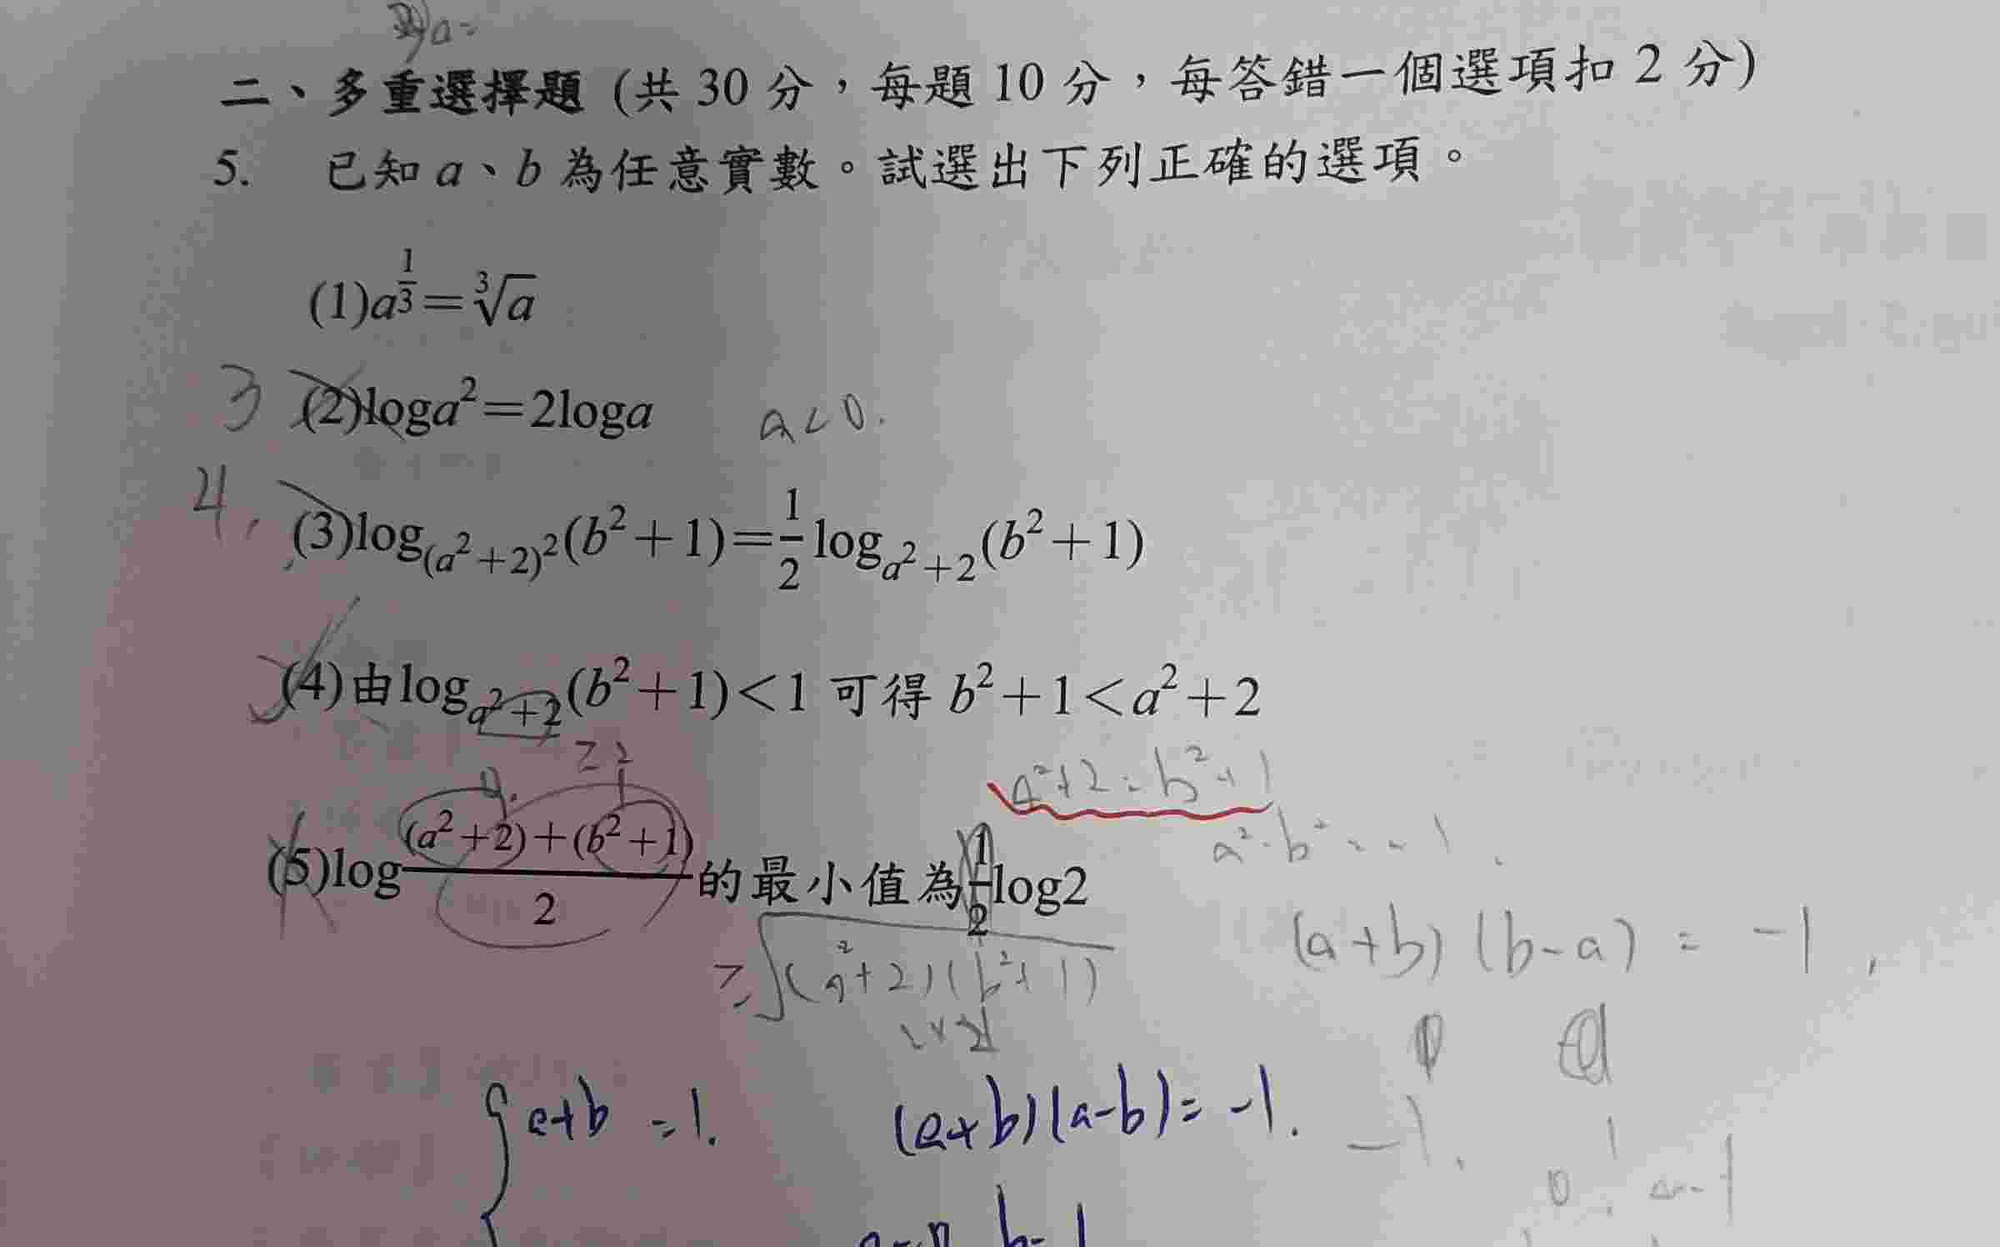 則a=
二、多重選擇題 (共 30 分，每題 10 分，每答錯一個選項扣 2 分)
5. 已知 a、b 為任意實數。試選出下列正確的選項。
(1)a^{1/3}=∛a
3 (2)loga²=2loga a<0.
4, (3)log_{(a²+2)²}(b²+1)=1/2 log_{a²+2}(b²+1)
(4)由 log_{a²+2}(b²+1)<1 可得 b²+1<a²+2
≥2
a²+2=b²+1
(5)log ((a²+2)+(b²+1))/2 的最小值為 1/2 log2
a²-b²=-1.
≥√(a²+2)(b²+1)
(a+b)(b-a)=-1,
1×2
a+b=1. (a+b)(a-b)=-1.
-1.